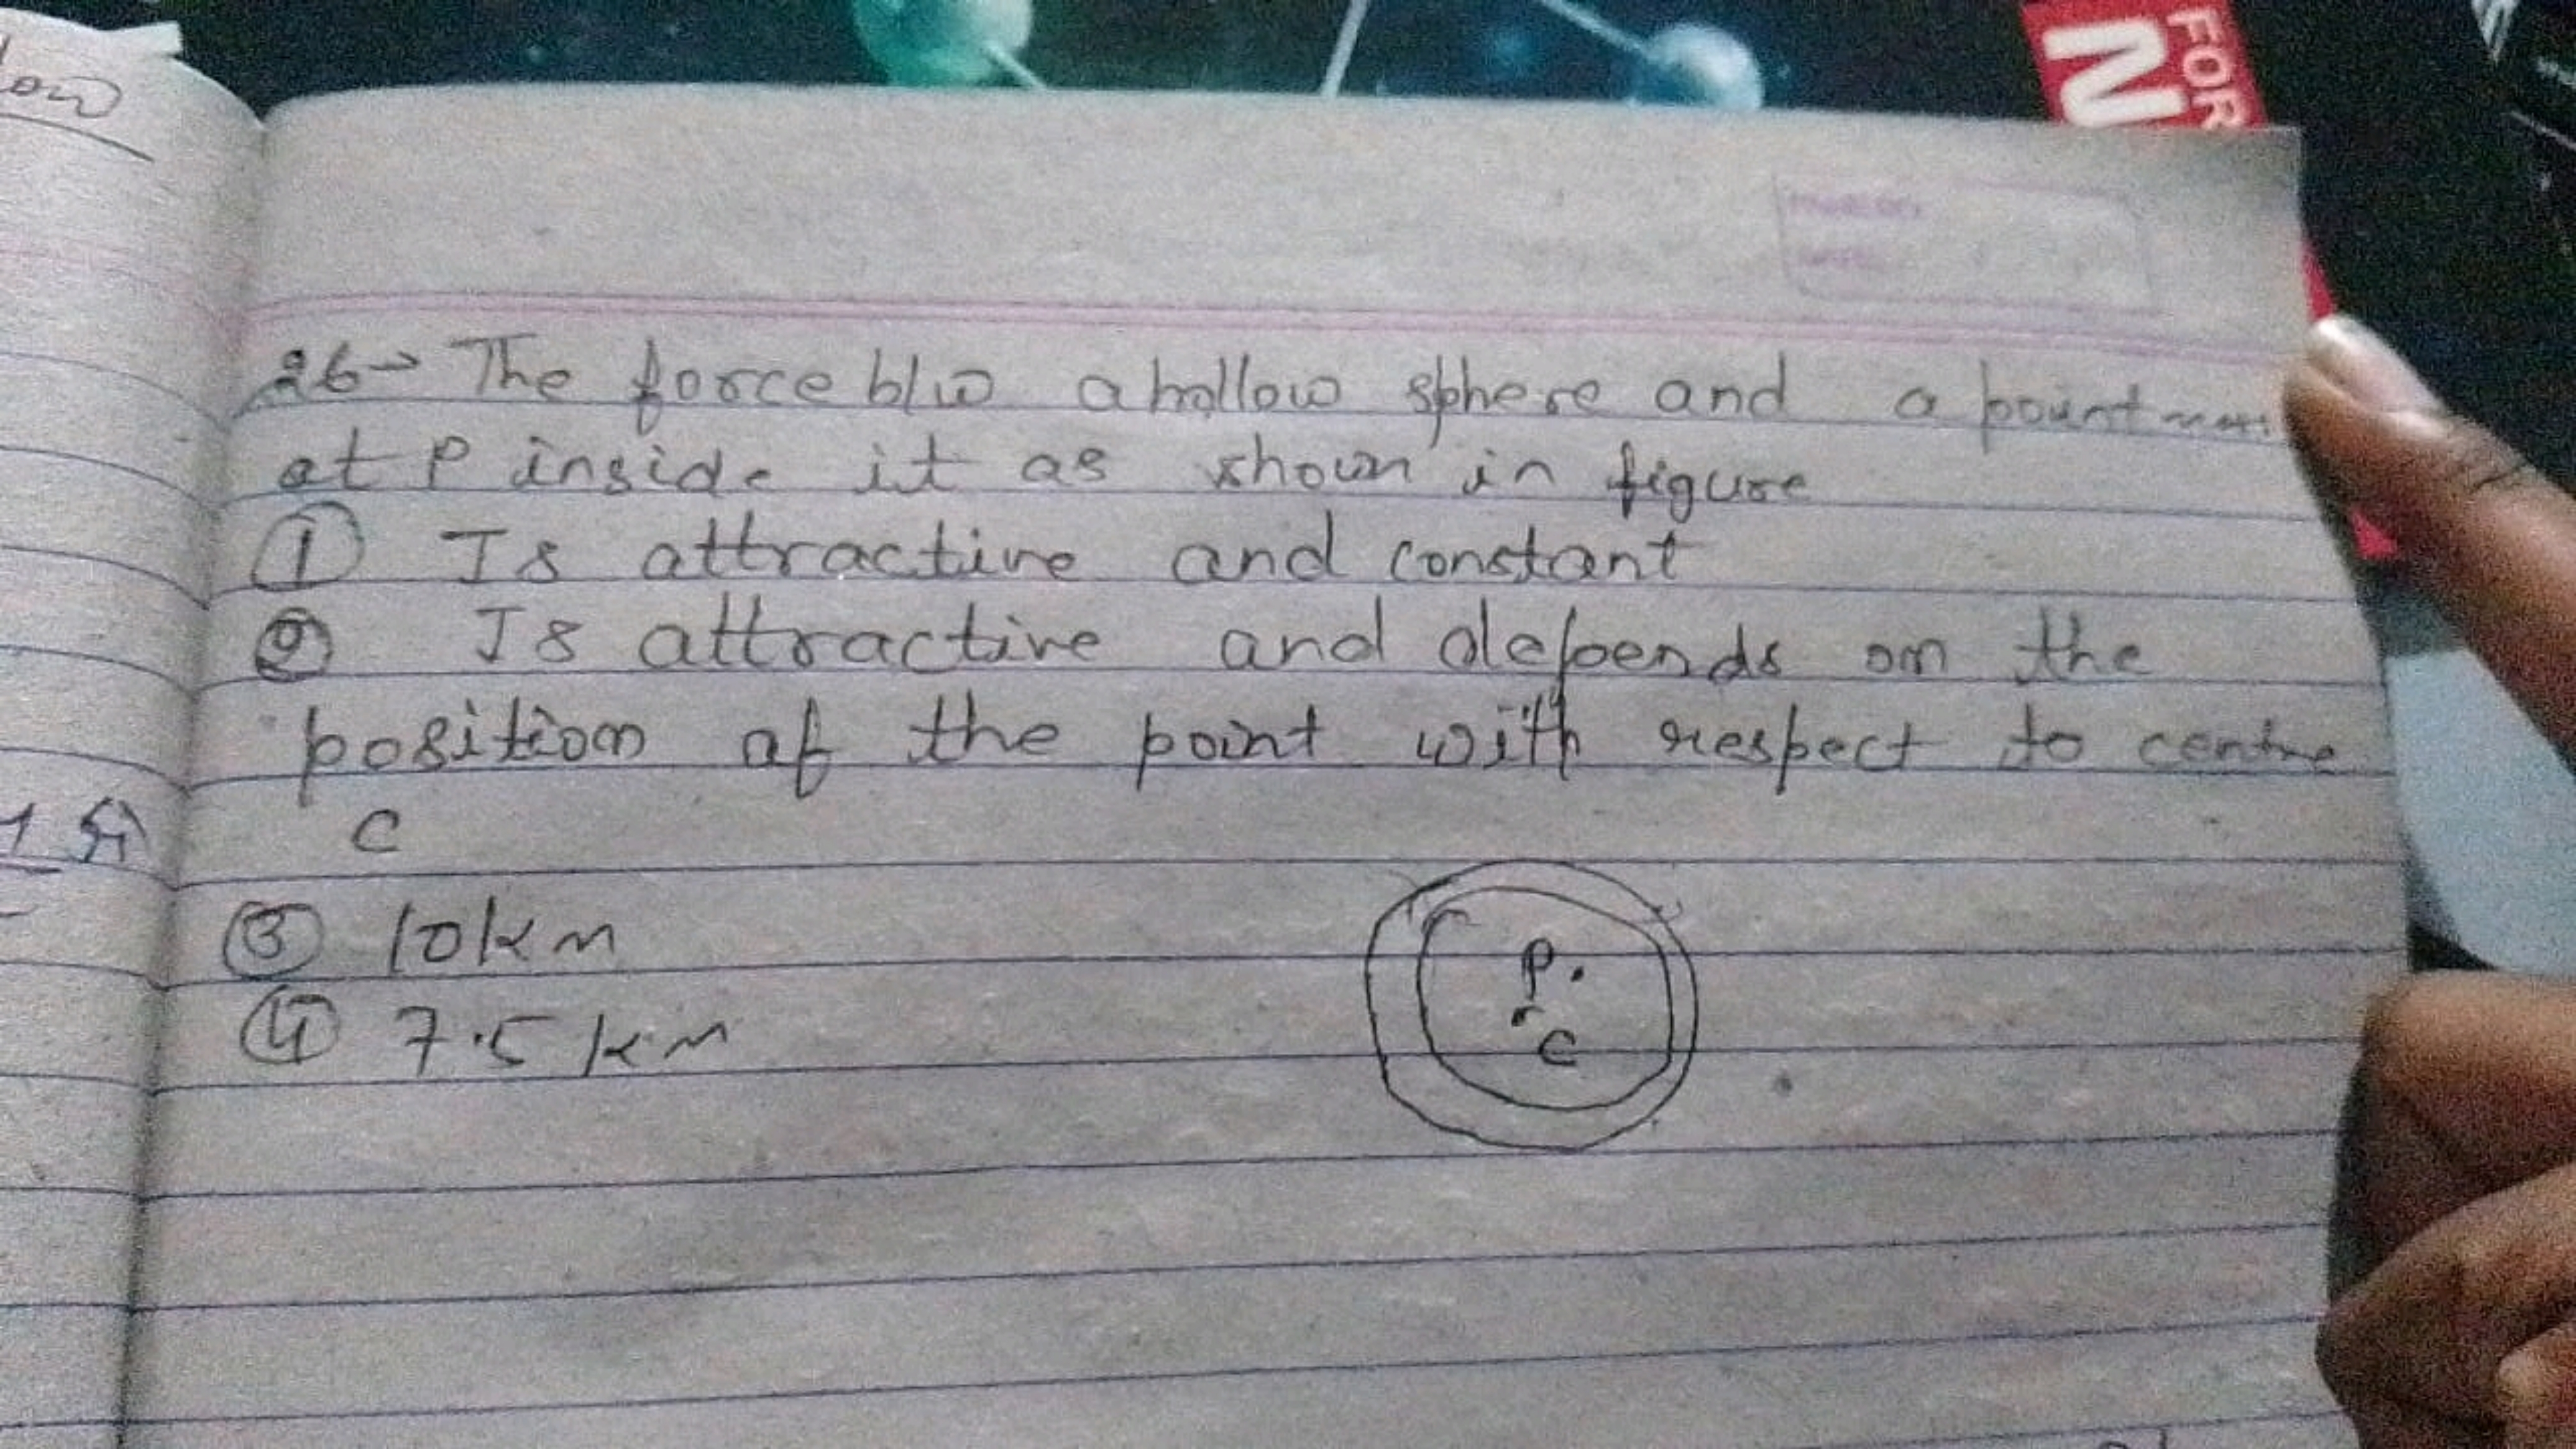 FOR
N
low
26→ The force b/w a hollow sphere and a point mass
at P inside it as shown in figure
① Is attractive and constant
② Is attractive and depends on the
position of the point with respect to centre
C
③ 10km
④ 7.5 km
P.
C